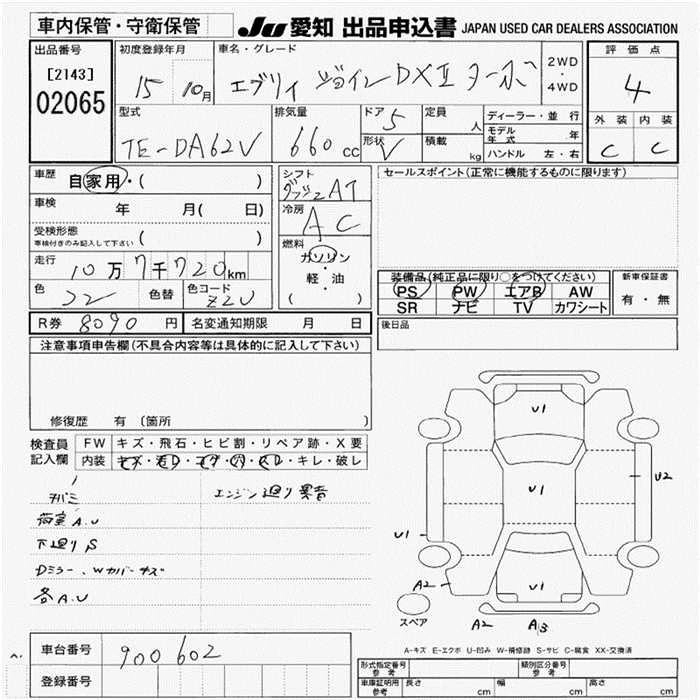 車内保管・守衛保管
JU 愛知 出品申込書 JAPAN USED CAR DEALERS ASSOCIATION
出品番号
[2143]
02065
初度登録年月
15 10月
車名・グレード
エブリィ ジョイン DXⅡ ターボ
2WD
・
4WD
評価点
4
外装 内装
C C
型式
TE-DA62V
排気量
660 cc
ドア 5
形状 V
定員 人
積載 kg
ディーラー・並行
モデル年式 年
ハンドル 左・右
車歴 自家用・( )
車検 年 月( 日)
受検形態
車検付きのみ記入して下さい ( )
走行 10万7千720km
色 色替 色コード Z2U
R券 8090 円 名変通知期限 月 日
シフト
AT
冷房
AC
燃料
ガソリン
・
軽・油
( )
セールスポイント(正常に機能するものに限ります)
装備品(純正品に限り○をつけてください)
PS PW エアB AW
SR ナビ TV カワシート
新車保証書
有・無
後日品
注意事項申告欄(不具合内容等は具体的に記入して下さい)
修復歴 有 〔箇所
検査員
記入欄
FW キズ・飛石・ヒビ割・リペア跡・X要
内装 キズ・汚レ・コゲ・穴・スレ・キレ・破レ
エンジン廻り異音
荷室A.U
下廻りS
Dミラー、Wカバーキズ
各A.U
U1
U1
U2
U1
U1
A2
A2
スペア
A-キズ E-エクボ U-凹み W-補修跡 S-サビ C-腐食 XX-交換済
車台番号 900602
登録番号
形式指定番号
参考
類別区分番号
車庫証明用
参考
長さ cm 幅 cm 高さ cm